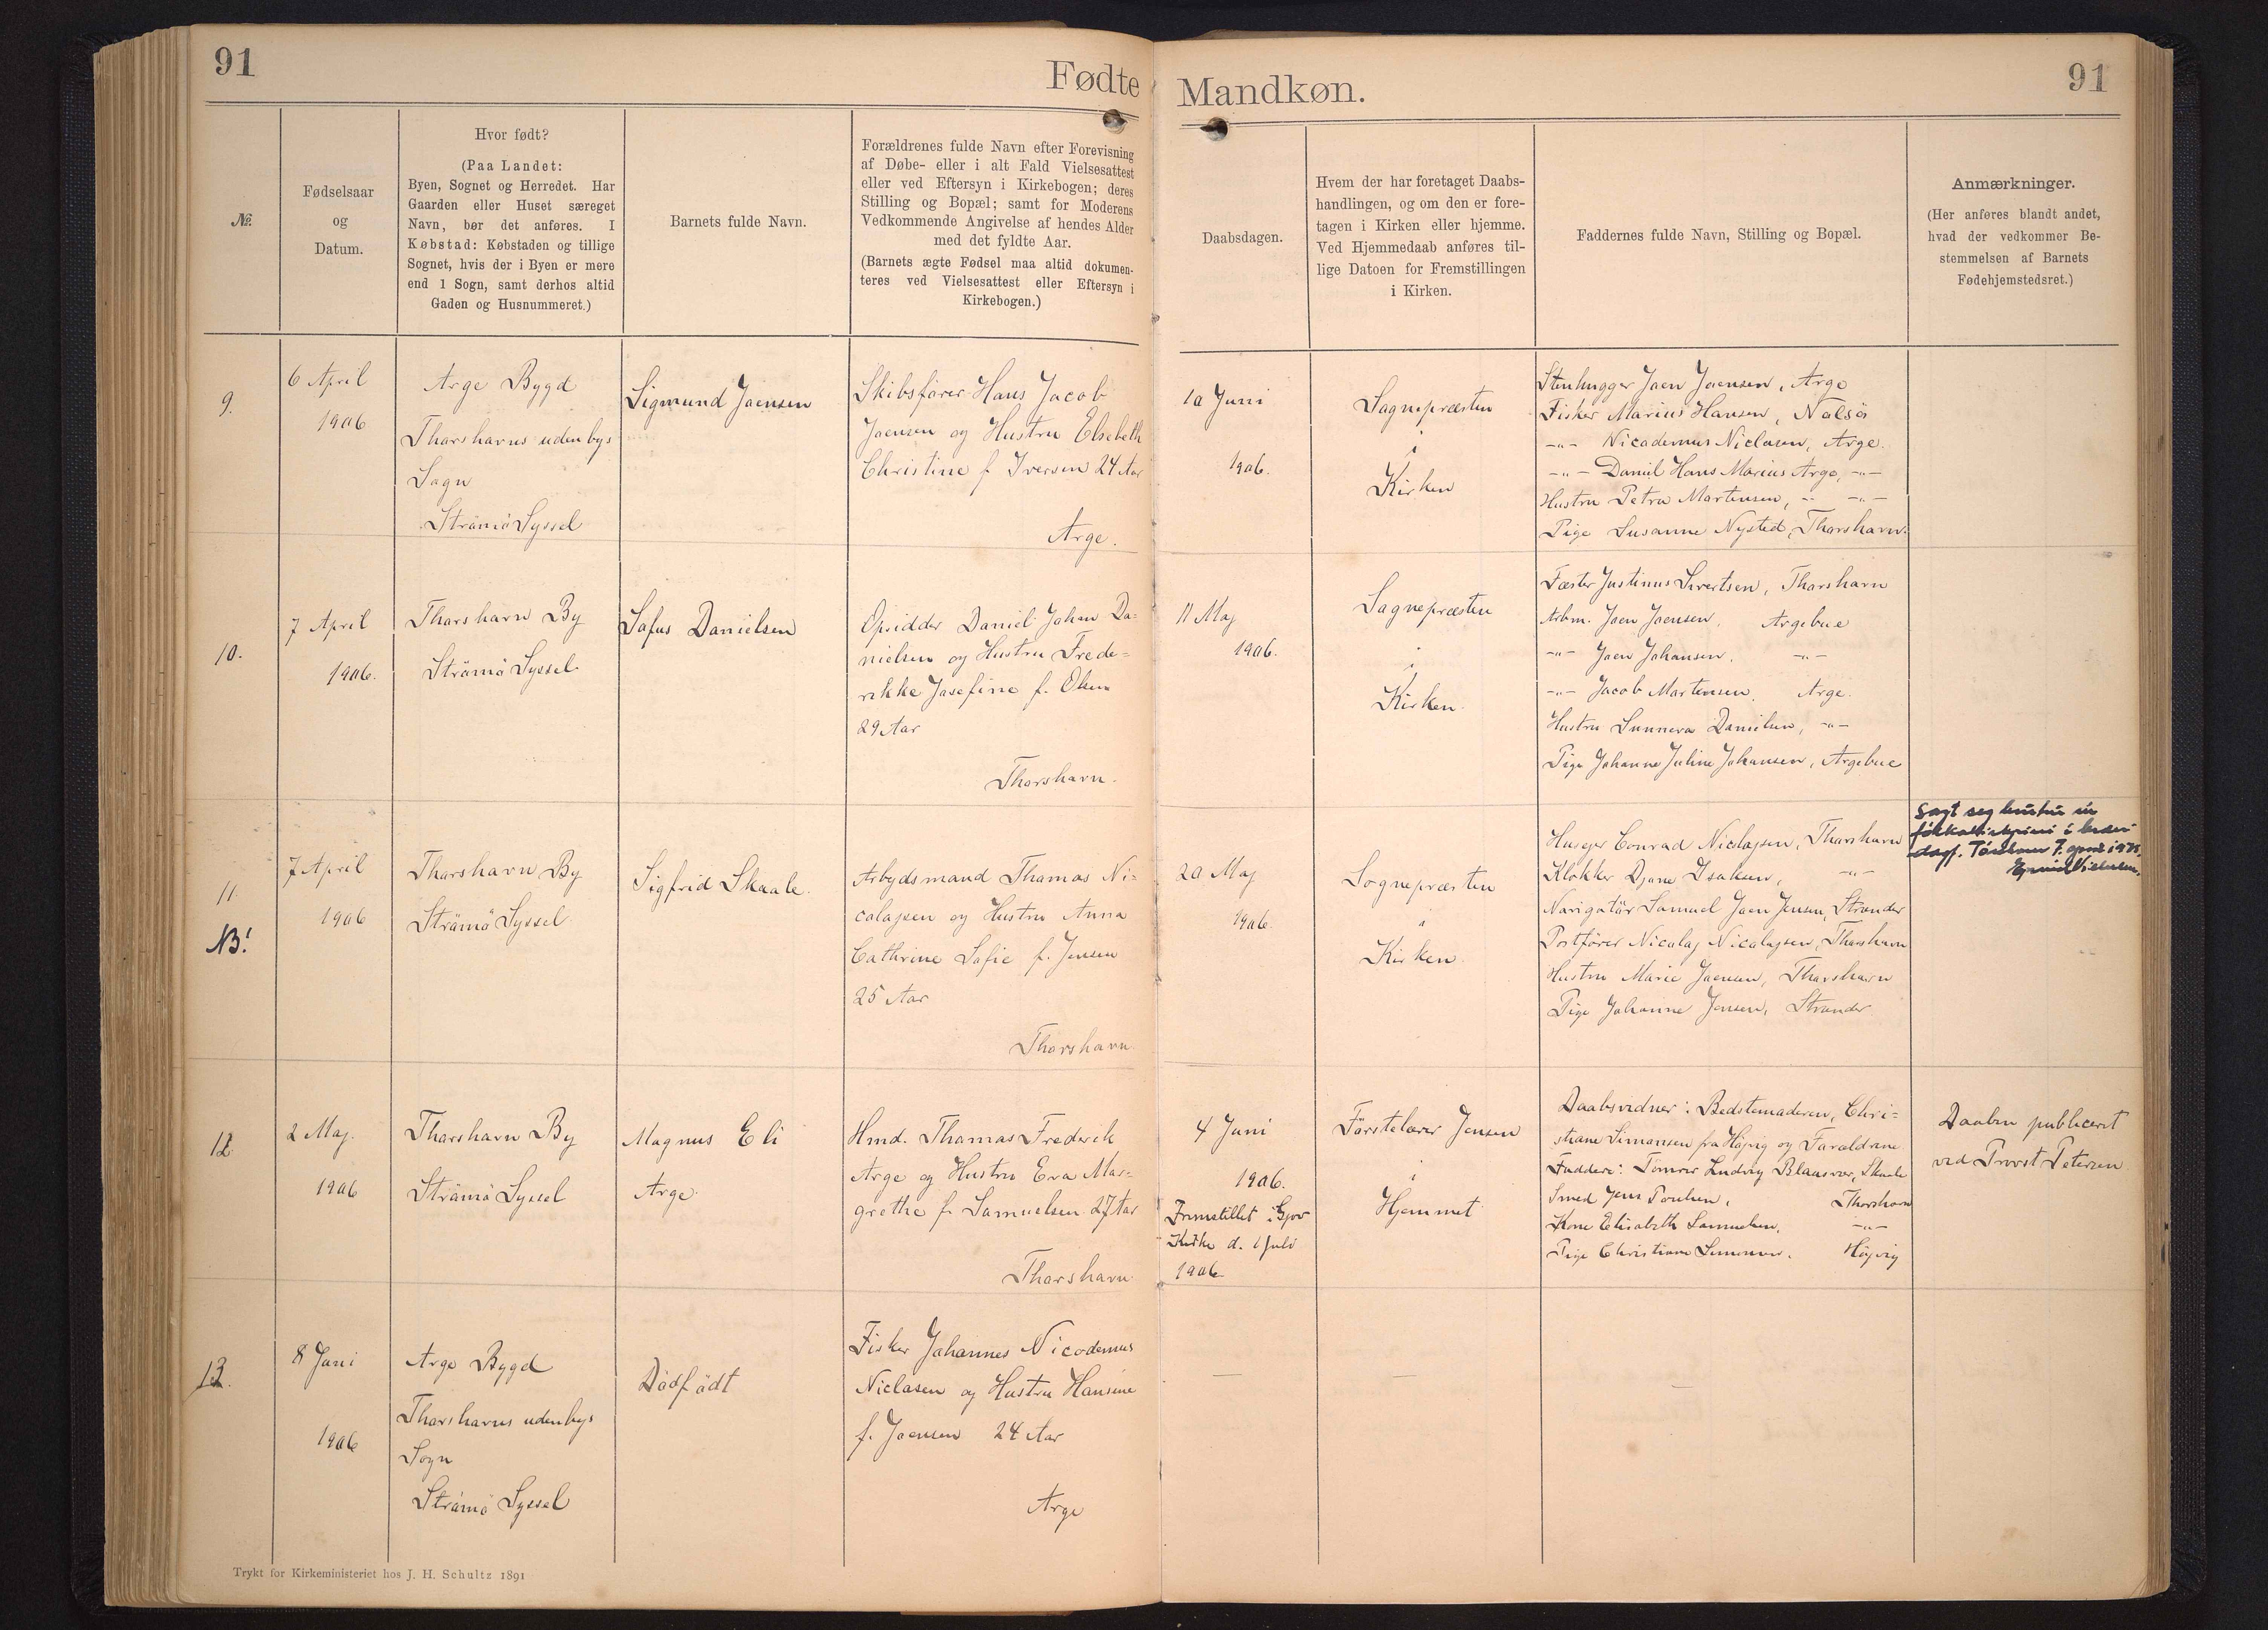 91
Fødte
Mandkøn.
91
№.
Fødselsaar
og
Datum.
Hvor født?
(Paa Landet:
Byen, Sognet og Herredet. Har
Gaarden eller Huset særeget
Navn, bør det anføres. I
Købstad: Købstaden og tillige
Sognet, hvis der i Byen er mere
end 1 Sogn, samt derhos altid
Gaden og Husnummeret.)
Barnets fulde Navn.
Forældrenes fulde Navn efter Forevisning
af Døbe- eller i alt Fald Vielsesattest
eller ved Eftersyn i Kirkebogen; deres
Stilling og Bopæl; samt for Moderens
Vedkommende Angivelse af hendes Alder
med det fyldte Aar.
(Barnets ægte Fødsel maa altid dokumen-
teres ved Vielsesattest eller Eftersyn i
Kirkebogen.)
Daabsdagen.
Hvem der har foretaget Daabs-
handlingen, og om den er fore-
tagen i Kirken eller hjemme.
Ved Hjemmedaab anføres til-
lige Datoen for Fremstillingen
i Kirken.
Faddernes fulde Navn, Stilling og Bopæl.
Anmærkninger.
(Her anføres blandt andet,
hvad der vedkommer Be-
stemmelsen af Barnets
Fødehjemstedsret.)
9.
6 April
1906
Arge Bygd
Thorshavns udenbys
Sogn
Strömö Syssel
Sigmund Joensen
Skibsfører Hans Jacob
Joensen og Hustru Elsebeth
Christine f. Iversen 24 Aar
Arge.
10 Juni
1906.
Sognepræsten
i
Kirken
Stenhugger Joen Joensen, Arge
Fisker Marius Hansen, Nolsö
-"- Nicodemus Niclasen, Arge.
-"- Daniel Hans Marius Arge, -"-
Hustru Petra Martensen, -"-
Pige Susanne Nysted, Thorshavn.
10.
7 April
1906.
Thorshavn By
Strömö Syssel
Sofus Danielsen
Opsidder Daniel Johan Da-
nielsen og Hustru Frede-
rikke Josefine f. Olsen
29 Aar
Thorshavn.
11 Maj
1906.
Sognepræsten
i
Kirken.
Fæster Justinus Sivertsen, Thorshavn
Arbm. Joen Joensen, Argebue
-"- Joen Johansen, -"-
-"- Jacob Martensen, Arge.
Hustru Sunneva Danielsen, -"-
Pige Johanne Juline Johansen, Argebue
11
NB!
7 April
1906
Thorshavn By
Strömö Syssel
Sigfrid Skaale.
Arbejdsmand Thomas Ni-
colajsen og Hustru Anna
Cathrine Sofie f. Jensen
25 Aar
Thorshavn
20 Maj
1906.
Sognepræsten
i
Kirken.
Husejer Conrad Nicolajsen, Thorshavn
Klokker Djone Isaksen, -"-
Navigatör Samuel Joen Jensen, Strender
Postfører Nicolaj Nicolajsen, Thorshavn
Hustru Marie Joensen, Thorshavn
Pige Johanne Jensen, Strender
Sagt seg burtur úr
fólkakirkjuni í
dag. Tórshavn 7. april 1975.
12
2 Maj.
1906
Thorshavn By
Strömö Syssel
Magnus Eli
Arge.
Hmd. Thomas Frederik
Arge og Hustru Eva Mar-
grethe f. Samuelsen 27 Aar
Thorshavn
4 Juni
1906.
Fremstillet i
Kirke d. 1 Juli
1906.
Förstelærer Jensen
i
Hjemmet
Daabsvidner: Bedstemoderen, Chri-
stiane Simonsen fra Höjvig og Forældrene
Faddere: Tömrer Ludvig Blaasvær, Skaale
Smed Jens Poulsen, Thorshavn
Kone Elisabeth Samuelsen, -"-
Pige Christiane Simonsen, Höjvig
Daaben publiceret
ved Provst Petersen
13.
8 Juni
1906
Arge Bygd
Thorshavns udenbys
Sogn
Strömö Syssel
Dödfödt
Fisker Johannes Nicodemus
Niclasen og Hustru Hansine
f. Joensen 24 Aar
Arge
—
—
—
Trykt for Kirkeministeriet hos J. H. Schultz 1891